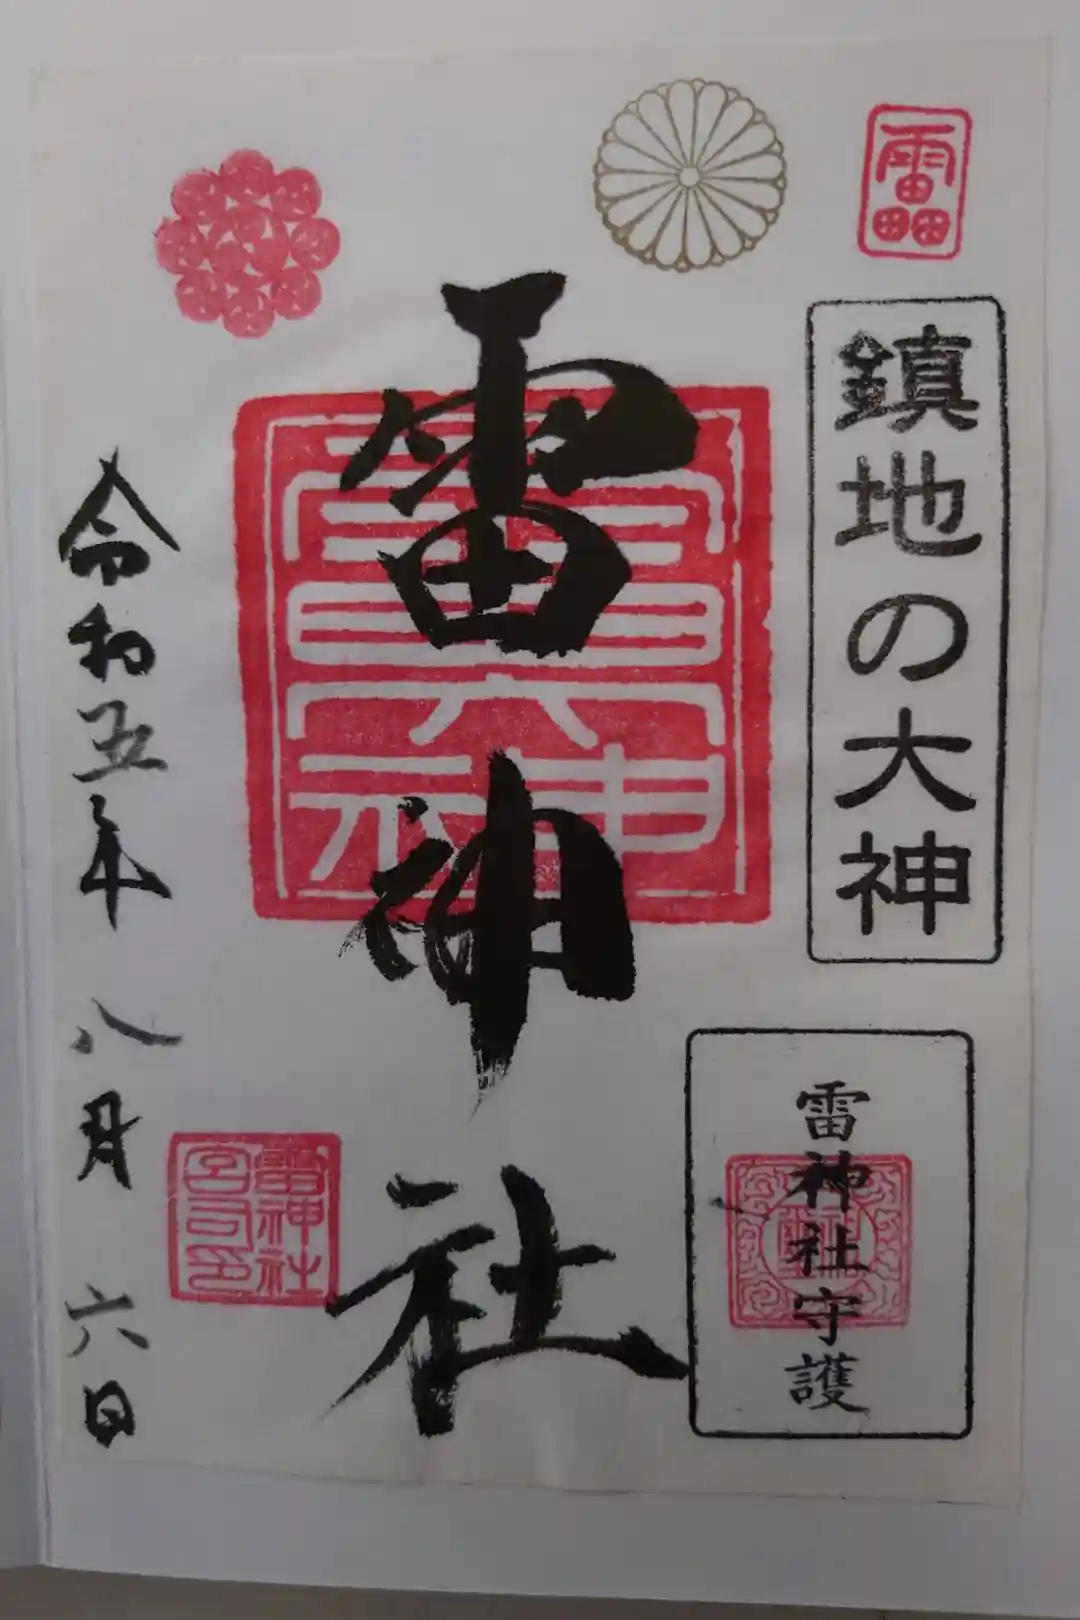 雷
鎮地の大神
雷神社守護
雷神社
雷神社
宮司印
令和五年 八月 六日